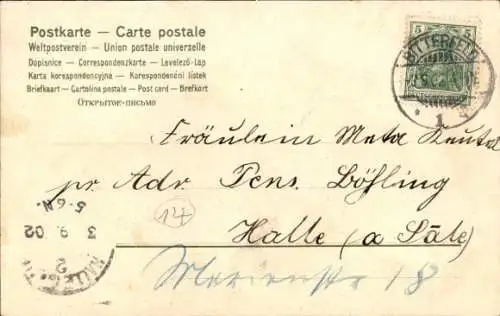 Postkarte — Carte postale
Weltpostverein — Union postale universelle
Dopisnice — Correspondenzkarte — Levelező-Lap
Karta korespondencyjna — Korespondenční lístek
Briefkaart — Cartolina postale — Post card — Brefkort
Открытое-письмо
5 5
BITTERFELD
1
Fräulein Meta
pr. Adr. Pens. Böhling
14
Halle (a Säle)
Marienstr 18
5-6N.
3 9. 02
2